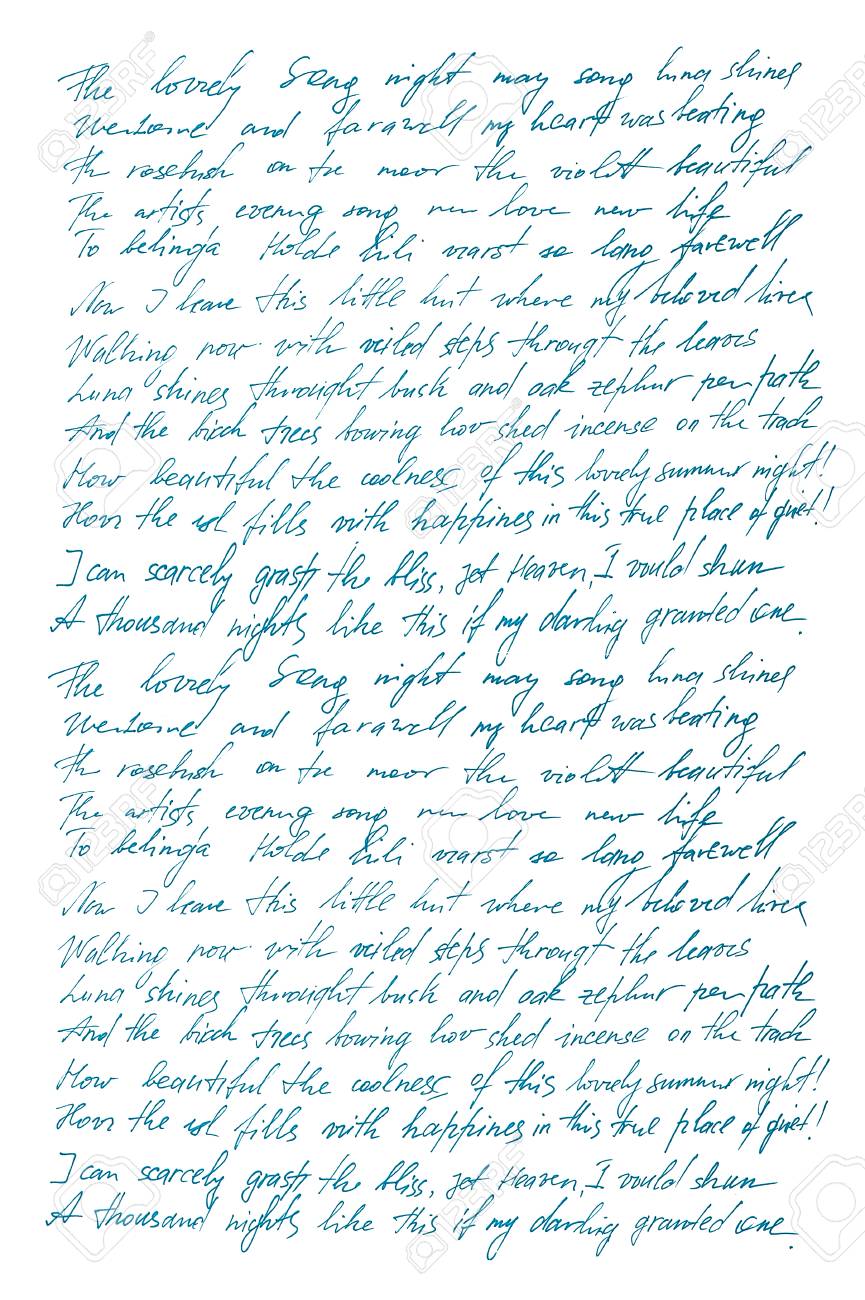 The lovely Song night may song luna shines
Welcome and farawell my heart was beating
Th rosebush on the moor the violett beautiful
The artists evening song new love new life
To belinda Holde Lili warst so lang farewell
Now I leave this little hut where my beloved lives
Walking now with veiled steps througt the leaves
Luna shines throught bush and oak zephur per path
And the birch trees bowing how shed incense on the track
How beautiful the coolness of this lovely summer night!
How the soul fills with happines in this true place of quiet!
I can scarcely grasp the bliss, yet Heaven, I would shun
A thousand nights like this if my darling granted one.
The lovely Song night may song luna shines
Welcome and farawell my heart was beating
Th rosebush on the moor the violett beautiful
The artists evening song new love new life
To belinda Holde Lili warst so lang farewell
Now I leave this little hut where my beloved lives
Walking now with veiled steps througt the leaves
Luna shines throught bush and oak zephur per path
And the birch trees bowing how shed incense on the track
How beautiful the coolness of this lovely summer night!
How the soul fills with happines in this true place of quiet!
I can scarcely grasp the bliss, yet Heaven, I would shun
A thousand nights like this if my darling granted one.